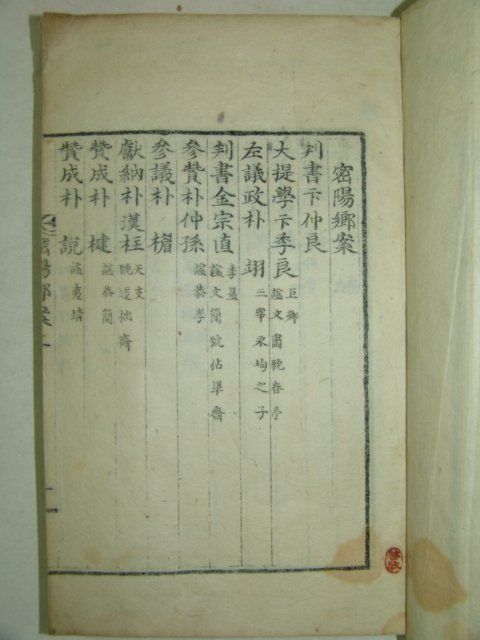 密陽鄉案
判書卞仲良
大提學卞季良 巨卿 諡文肅號春亭
左議政朴翊 三宰永均之子
判書金宗直 季昷 諡文簡號佔畢齋
參贊朴仲孫 諡恭孝
參議朴楷
獻納朴漢柱 天支 號迂拙齋
贊成朴楗 諡恭簡
贊成朴說 諡夷靖
密陽鄉案